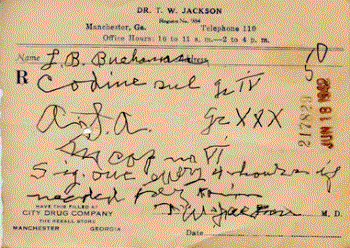 DR. T. W. JACKSON
Manchester, Ga. Telephone 110
Office Hours: 10 to 11 a. m.—2 to 4 p. m.
Name L. B. Buchanan
R Codine sul gr IV
A.S.A. gr XXX
217829
JUN 18 1942
M cap no VI
Sig. one every 4 hours if
needed for pain
TW Jackson M. D.
HAVE THIS FILLED AT
CITY DRUG COMPANY
THE REXALL STORE
MANCHESTER GEORGIA
Date